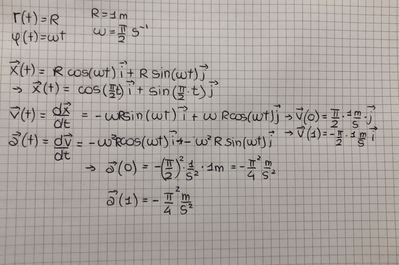 r(t) = R R = 1m
φ(t) = ωt ω = π/2 s⁻¹
x⃗(t) = R cos(ωt) i⃗ + R sin(ωt) j⃗
→ x⃗(t) = cos(π/2 t) i⃗ + sin(π/2 · t) j⃗
v⃗(t) = dx⃗/dt = -ωR sin(ωt) i⃗ + ωR cos(ωt) j⃗ → v⃗(0) = π/2 · 1 m/s · j⃗
→ v⃗(1) = -π/2 · 1 m/s i⃗
a⃗(t) = dv⃗/dt = -ω²R cos(ωt) i⃗ + -ω²R sin(ωt) i⃗
→ a⃗(0) = -(π/2)² · 1/s² · 1m = -π²/4 m/s²
a⃗(1) = -π²/4 m/s²